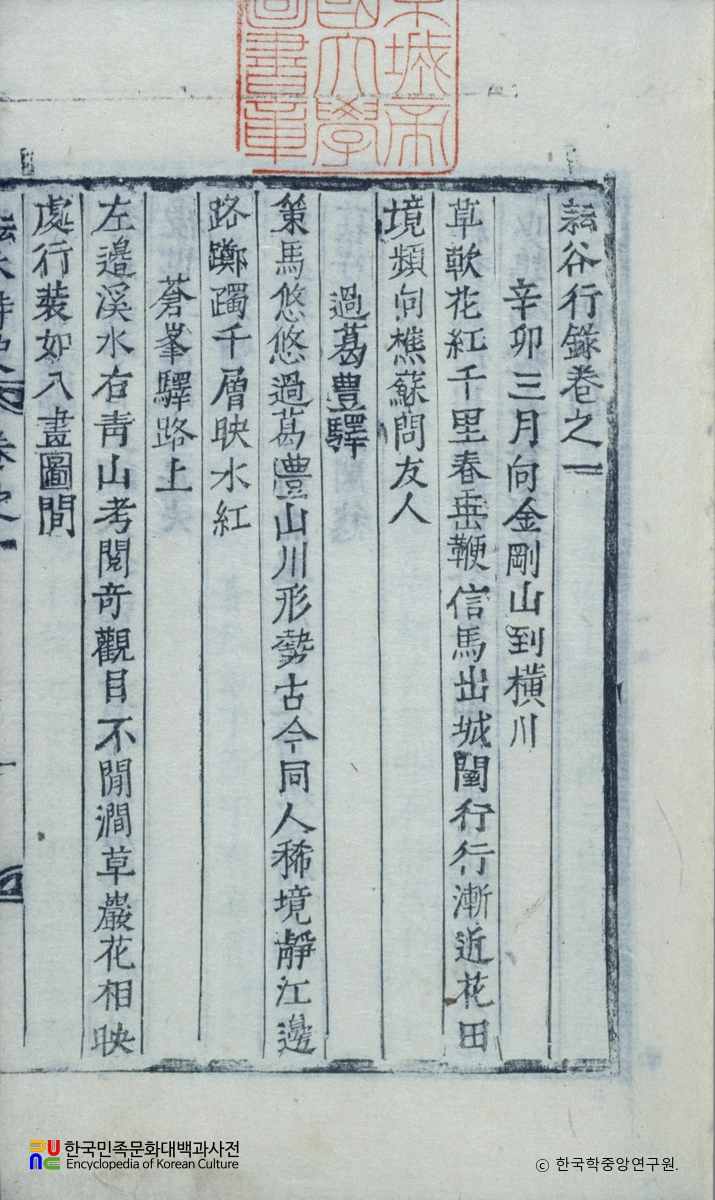 城帝
國大學
圖書章
耘谷行錄卷之一
辛卯三月向金剛山到橫川
草軟花紅千里春垂鞭信馬出城闉行行漸近花田
境頻向樵蘇問友人
過葛豊驛
策馬悠悠過葛豊山川形勢古今同人稀境靜江邊
路躑躅千層映水紅
蒼峯驛路上
左邊溪水右靑山考閱奇觀目不閒澗草巖花相映
處行裝如入畫圖間
한국민족문화대백과사전
Encyclopedia of Korean Culture
© 한국학중앙연구원.